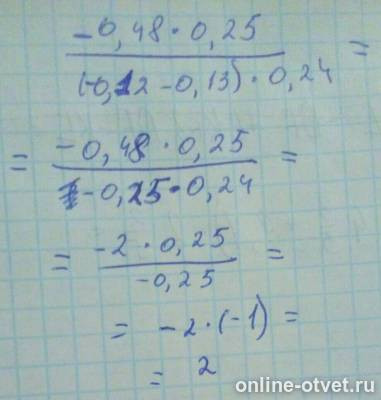 -0,48 · 0,25
(-0,12 - 0,13) · 0,24 =
= -0,48 · 0,25
-0,25 · 0,24 =
= -2 · 0,25
-0,25 =
= -2 · (-1) =
= 2
online-otvet.ru